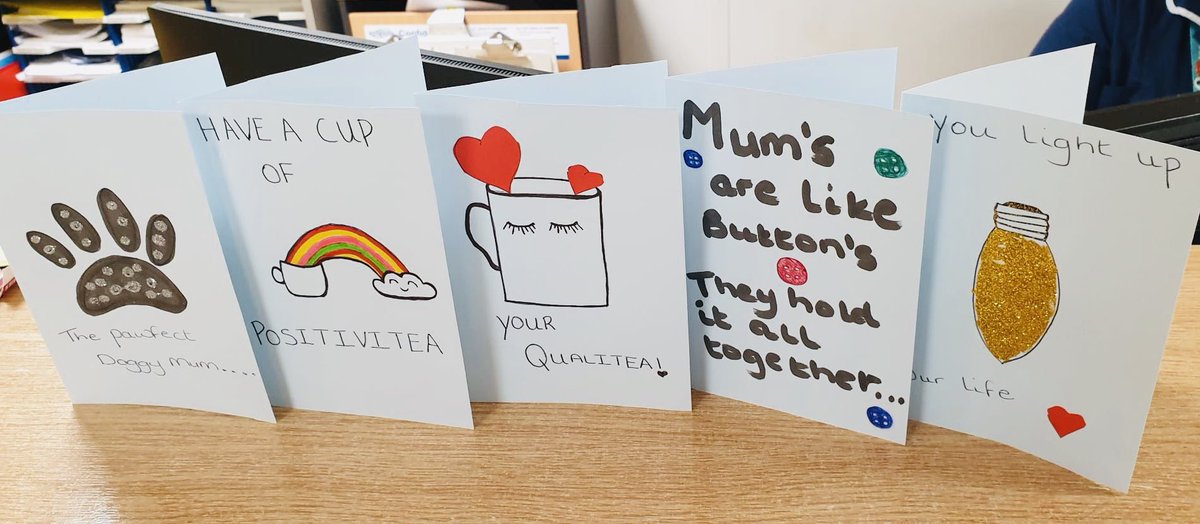 The pawfect
Doggy Mum....
HAVE A CUP
OF
POSITIVITEA
YOUR
QUALITEA!
Mum's
are like
Button's
They hold
it all
together...
You light up
our life